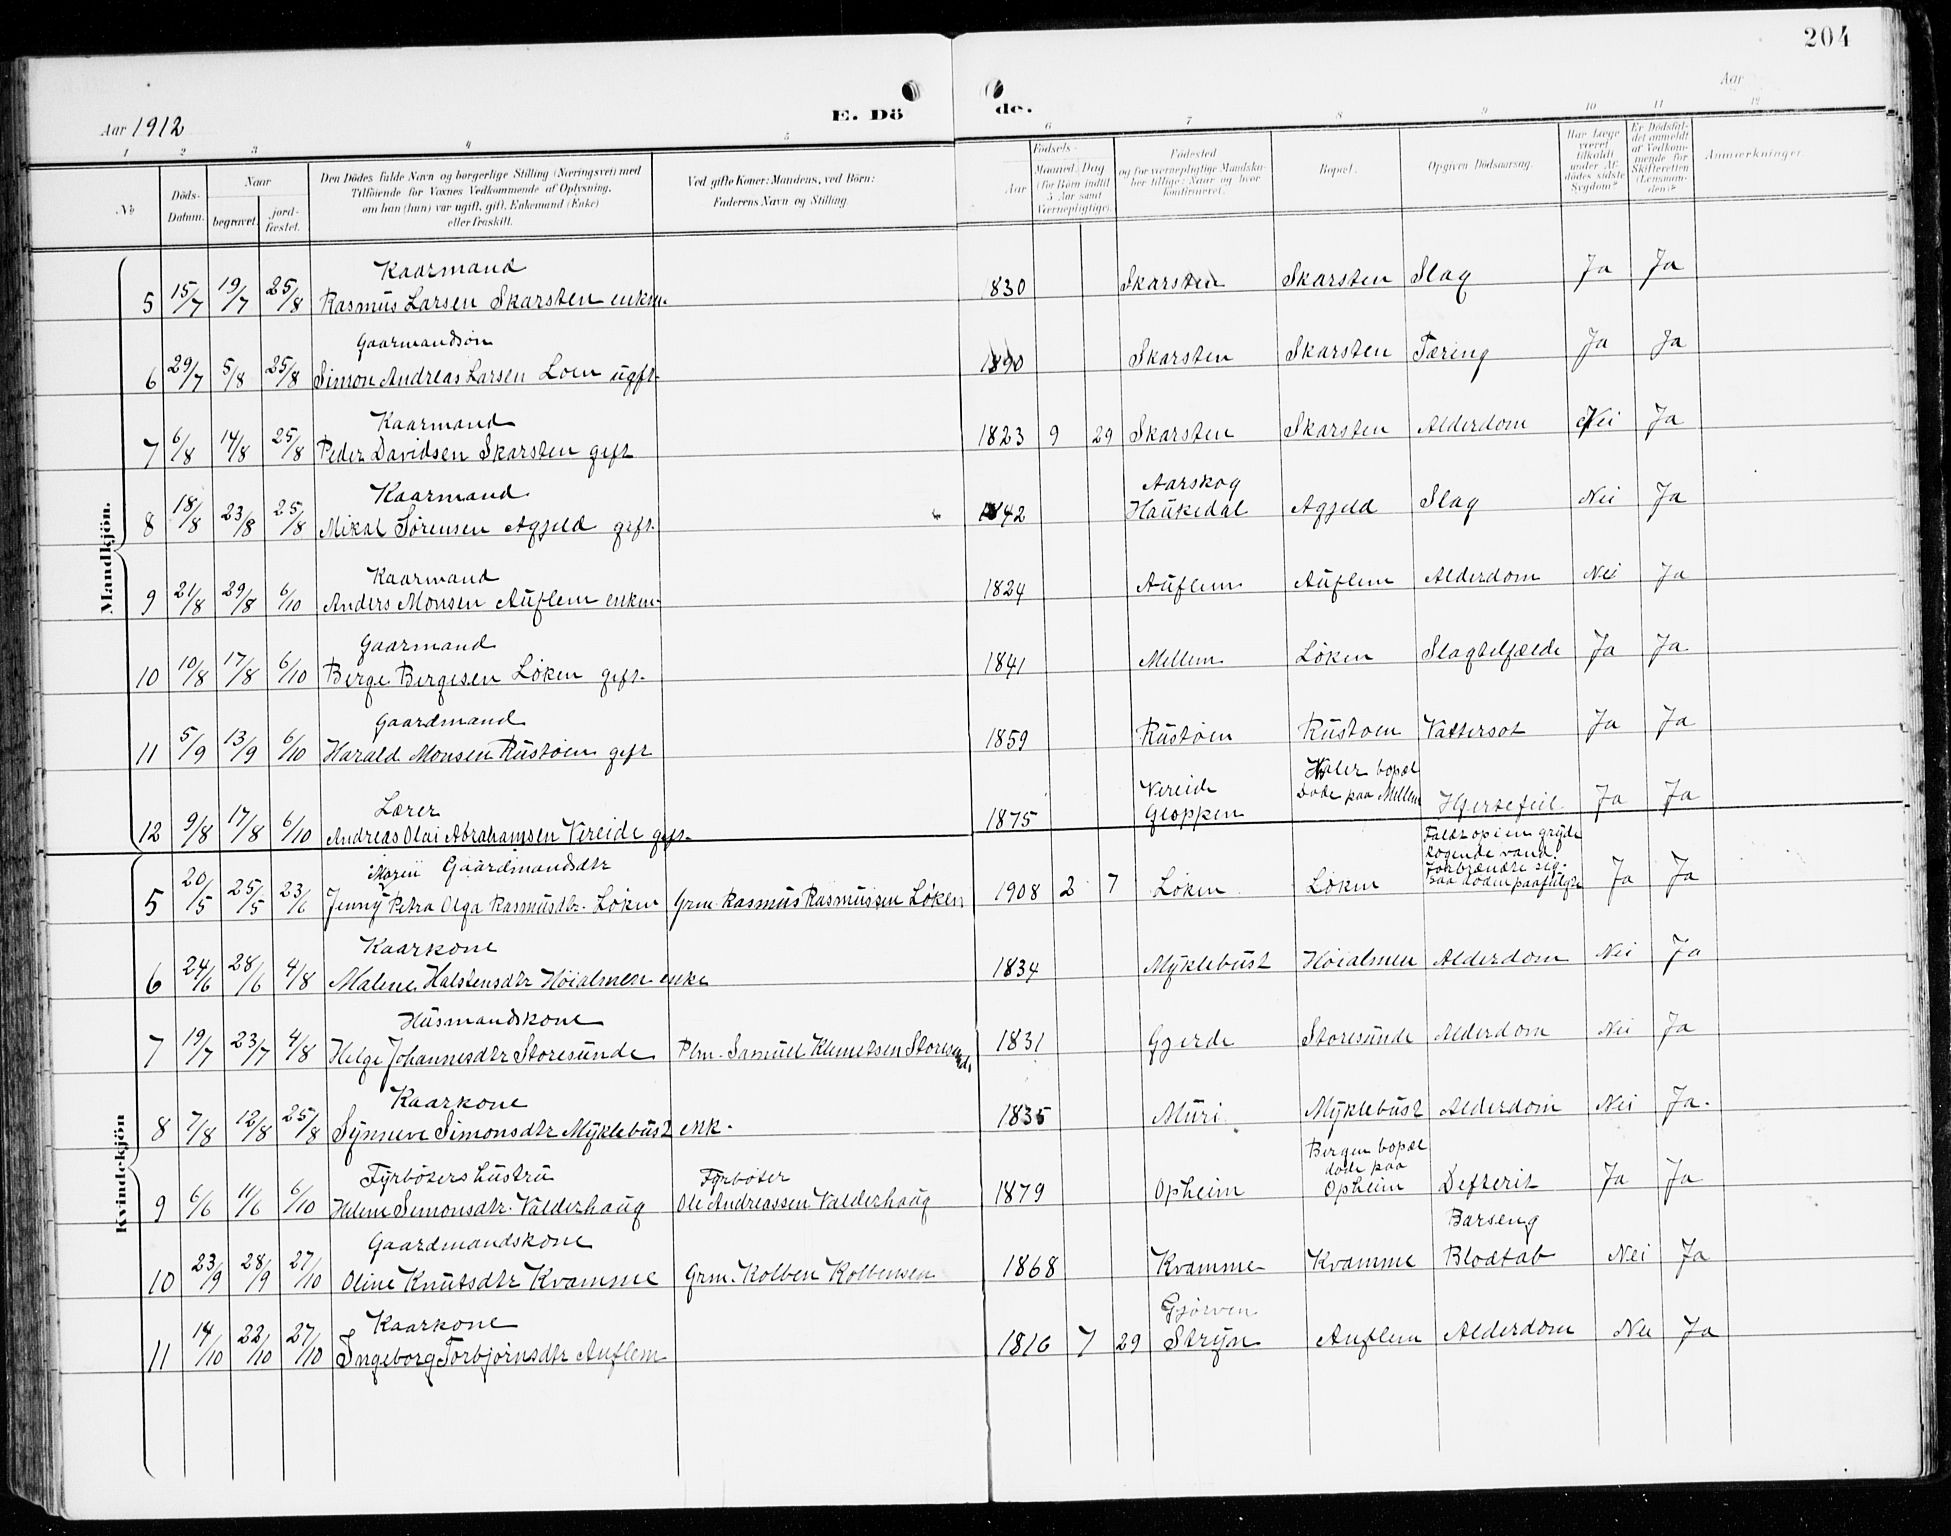 204
Aar 1912
E. Dö de.
Aar
1 2 3 4 5 6 7 8 9 10 11 12
No
Döds-Datum.
Naar
begravet.
jord-fæstet.
Den Dödes fulde Navn og borgerlige Stilling (Næringsvei) med
Tilföiende for Voxnes Vedkommende af Oplysning,
om han (hun) var ugift, gift, Enkemand (Enke)
eller fraskilt.
Ved gifte Koner: Mandens, ved Börn:
Faderens Navn og Stilling.
Födsels-
Aar
Maaned. Dag
(for Börn indtil
5 Aar samt
Værnepligtige).
Födested
og for værnepligtige Mandska-
ber tillige: Naar og hvor
konfirmeret.
Bopæl.
Opgiven Dödsaarsag.
Har Læge
været
tilkaldt
under Af-
dödes sidste
Sygdom?
Er Dödsfal-
det anmeldt
af Vedkom-
mende for
Skifteretten
(Lensman-
den)?
Anmærkninger.
Mandkjön.
Kaarmand
5 15/7 19/7 25/8 Rasmus Larsen Skarsten enkm. 1830 Skarsten Skarsten Slag Ja Ja
Gaarmandsøn
6 29/7 5/8 25/8 Simon Andreas Larsen Loen ugft. 1890 Skarsten Skarsten Tæring Ja Ja
Kaarmand
7 6/8 14/8 25/8 Peder Davidsen Skarsten gift 1823 9 29 Skarsten Skarsten Alderdom Nei Ja
Kaarmand Aarskog
8 18/8 23/8 25/8 Mikal Sørensen Agjeld gift. 1842 Haukedal Agjeld Slag Nei Ja
Kaarmand
9 21/8 29/8 6/10 Anders Monsen Auflem enkm. 1824 Auflem Auflem Alderdom Nei Ja
Gaarmand
10 10/8 17/8 6/10 Berge Bergesen Løken gift. 1841 Mellem Løken Slagtilfælde Ja Ja
Gaardmand
11 5/9 13/9 6/10 Harald Monsen Rustøen gift 1859 Rustøen Rustøen Vattersot Ja Ja
Lærer Vereide bopæl døde paa Mellem
12 9/8 17/8 6/10 Andreas Olai Abrahamsen Vereide gift. 1875 Gloppen Hjertefeil Ja Ja
Kvindekjön
Gaardmandsdtr Faldt op i en gryde kogende vand. Forbrændte sig
5 20/5 25/5 23/6 Jenny Petra Olga Rasmusdtr. Løken Grm. Rasmus Rasmussen Løken 1908 2 7 Løken Løken saa døden paafulgte Ja Ja
Kaarkone
6 24/6 28/6 4/8 Malene Halstensdtr Høialmen enke 1834 Myklebust Høialmen Alderdom Nei Ja
Husmandskone
7 19/7 23/7 4/8 Helge Johannesdtr Storesunde Plm. Samuel Klemetsen Storesund. 1831 Gjerde Storesunde Alderdom Nei Ja
Kaarkone
8 7/8 12/8 25/8 Synneve Simonsdtr Myklebust enk. 1835 Muri Myklebust Alderdom Nei Ja.
Fyrbøters hustru Fyrbøter Bergen bopæl døde paa
9 6/6 11/6 6/10 Helene Simonsdtr. Valderhaug Ole Andreassen Valderhaug 1879 Opheim Opheim Defterit Ja Ja
Gaardmandskone Barseng
10 23/9 28/9 27/10 Oline Knutsdtr Kvamme Grm. Kolben Kolbensen 1868 Kvamme Kvamme Blodtab Nei Ja
Kaarkone Gjørven
11 14/10 22/10 27/10 Ingeborg Torbjørnsdtr Auflem 1816 7 29 Stryn Auflem Alderdom Nei Ja